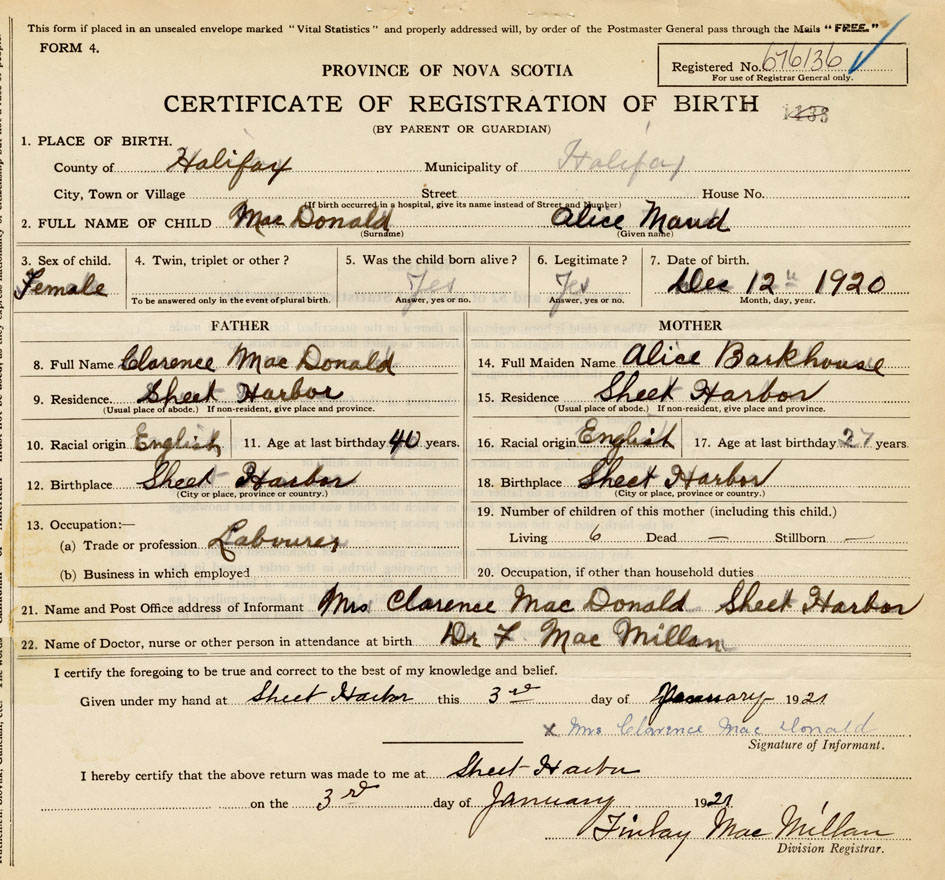 This form if placed in an unsealed envelope marked "Vital Statistics" and properly addressed will, by order of the Postmaster General pass through the Mails "FREE."
FORM 4.
Registered No. 676136
For use of Registrar General only.
PROVINCE OF NOVA SCOTIA
CERTIFICATE OF REGISTRATION OF BIRTH
(BY PARENT OR GUARDIAN)
1. PLACE OF BIRTH.
County of Halifax Municipality of Halifax
City, Town or Village Street House No.
(If birth occurred in a hospital, give its name instead of Street and Number)
2. FULL NAME OF CHILD Mac Donald Alice Maud
(Surname) (Given name)
3. Sex of child. 4. Twin, triplet or other? 5. Was the child born alive? 6. Legitimate? 7. Date of birth.
Female Yes Yes Dec 12th 1920
To be answered only in the event of plural birth. Answer, yes or no. Answer, yes or no. Month, day, year.
FATHER MOTHER
8. Full Name Clarence Mac Donald 14. Full Maiden Name Alice Barkhouse
9. Residence. Sheet Harbor 15. Residence Sheet Harbor
(Usual place of abode.) If non-resident, give place and province. (Usual place of abode.) If non-resident, give place and province.
10. Racial origin English 11. Age at last birthday 40 years. 16. Racial origin English 17. Age at last birthday 27 years.
12. Birthplace Sheet Harbor 18. Birthplace Sheet Harbor
(City or place, province or country.) (City or place, province or country.)
13. Occupation:— 19. Number of children of this mother (including this child.)
(a) Trade or profession Labourer Living 6 Dead — Stillborn —
(b) Business in which employed 20. Occupation, if other than household duties
21. Name and Post Office address of Informant Mrs Clarence Mac Donald Sheet Harbor
22. Name of Doctor, nurse or other person in attendance at birth Dr F Mac Millan
I certify the foregoing to be true and correct to the best of my knowledge and belief.
Given under my hand at Sheet Harbor this 3rd day of January 1921
x Mrs Clarence Mac Donald
Signature of Informant.
I hereby certify that the above return was made to me at Sheet Harbor
on the 3rd day of January 1921
Finlay Mac Millan
Division Registrar.